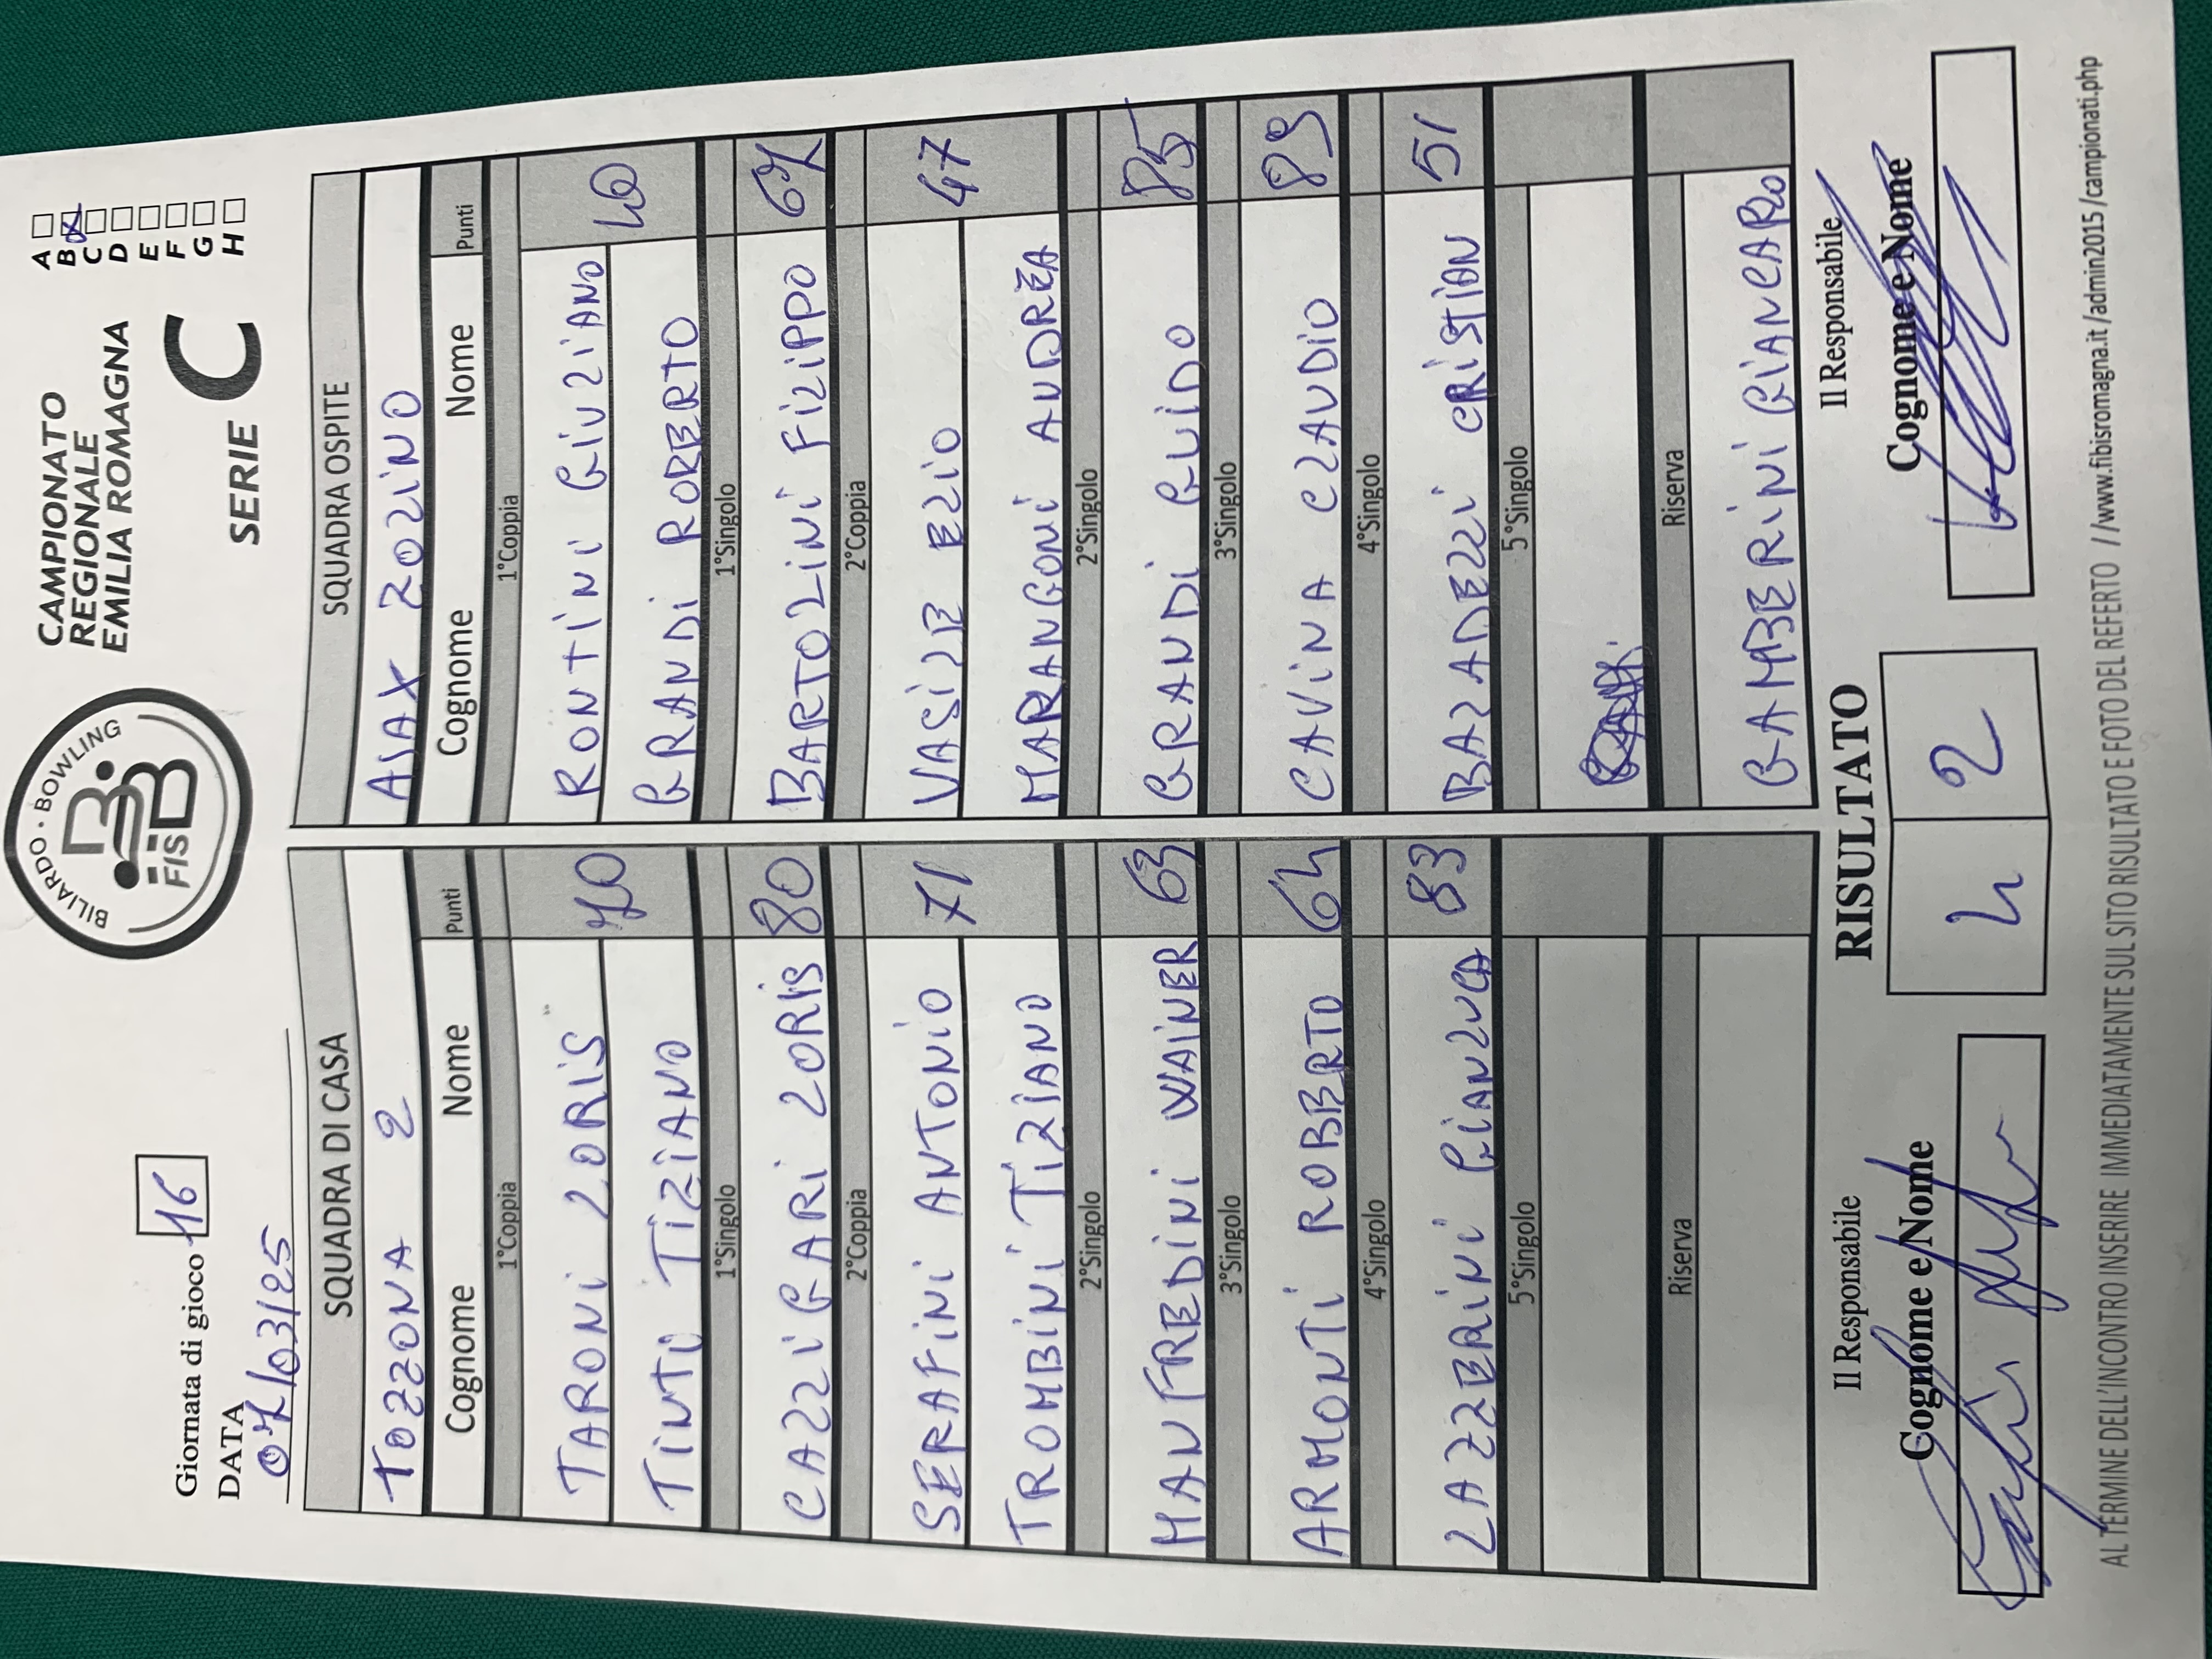 Giornata di gioco 16
DATA
07/03/25
BILIARDO · BOWLING
FISBB
CAMPIONATO
REGIONALE
EMILIA ROMAGNA
SERIE C
A
B X
C
D
E
F
G
H
SQUADRA DI CASA
TOZZONA 2
Cognome Nome Punti
1°Coppia
TARONI LORIS 70
TINTI TIZIANO
1°Singolo
CAZZIGARI LORIS 80
2°Coppia
SERAFINI ANTONIO 71
TROMBINI TIZIANO
2°Singolo
MANFREDINI WAINER 63
3°Singolo
ARMONTI ROBERTO 64
4°Singolo
LAZZERINI GIANLUCA 83
5°Singolo
Riserva
SQUADRA OSPITE
ASAX ZOLINO
Cognome Nome Punti
1°Coppia
RONTINI GIULIANO
GRANDI ROBERTO
1°Singolo
BARTOLINI FILIPPO 67
2°Coppia
VASILE EZIO 47
MARANGONI ANDREA
2°Singolo
GRANDI GUIDO 85
3°Singolo
CAVINA CLAUDIO 89
4°Singolo
BALADELLI CRISTIAN 51
5°Singolo
Riserva
GAMBERINI GIANCARLO
Il Responsabile
Cognome e Nome
RISULTATO
4 2
Il Responsabile
Cognome e Nome
AL TERMINE DELL'INCONTRO INSERIRE IMMEDIATAMENTE SUL SITO RISULTATO E FOTO DEL REFERTO //www.fibisromagna.it /admin2015 /campionati.php